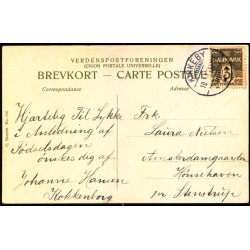 VERDENSPOSTFORENINGEN
(UNION POSTALE UNIVERSELLE)
BREVKORT - CARTE POSTALE
Correspondance
Adresse
KAKEBY
DANMARK
Hjertelig Til Lykke
i Anledning af
Födselsdagen
önskes dig af
Johanne Hansen
Kokkenborg
Frk.
Laura Nielsen
Amsterdamgaarden
Hönsehaven
pr Stenstrup